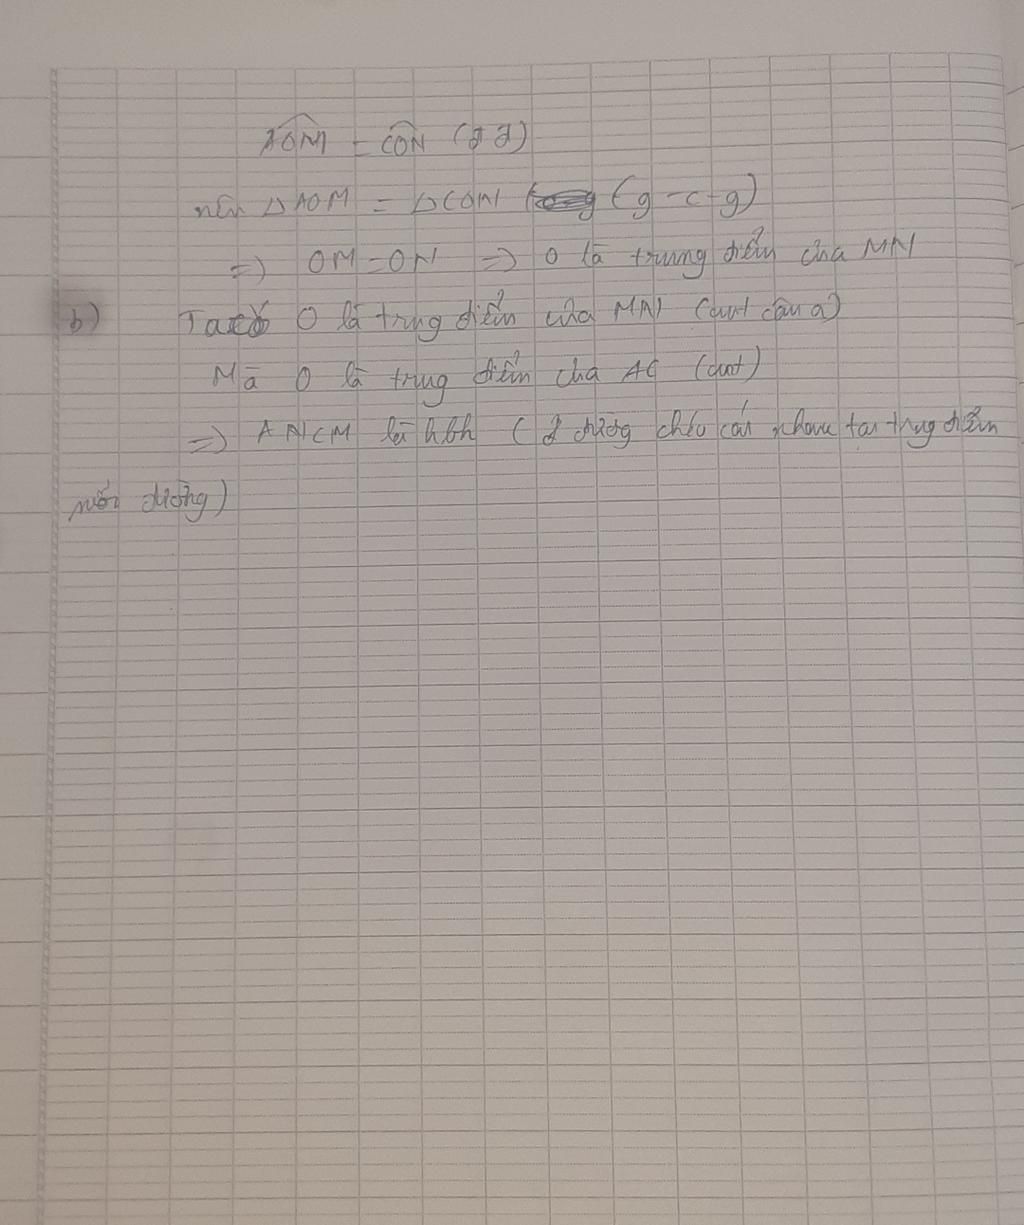 AOM = CON (đ đ)
nên ΔAOM = ΔCON (g-c-g)
=> OM = ON => O là trung điểm của MN
b) Ta có O là trung điểm của MN (cmt câu a)
Mà O là trung điểm của AC (cmt)
=> ANCM là hbh (2 đường chéo cắt nhau tại trung điểm
mỗi đường)